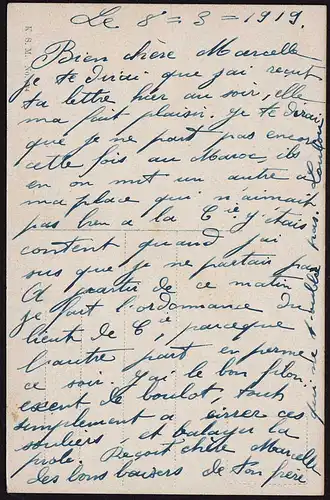 Le 8 = 3 = 1919.
Bien chère Marcelle
je te dirai que j'ai reçut
ta lettre hier au soir, elle
ma fait plaisir. Je te dirai
que je ne part pas encore
cette fois au Maroc, ils
en on mit un autre a
ma place qui n'aimait
pas bien a la Cie j'étais
content quand j'ai
sus que je ne partais pas
A partir de ce matin
je fait l'ordonnance du
lieut de Cie, parceque
l'autre part en perme
ce soir. J'ai le bon filon
exent de boulot, tout
simplement a cirrer ces
souliers et balayer la
piole. Reçoit chère Marcelle
des bons baisers de ton frère
qui ne t'oublie pas.